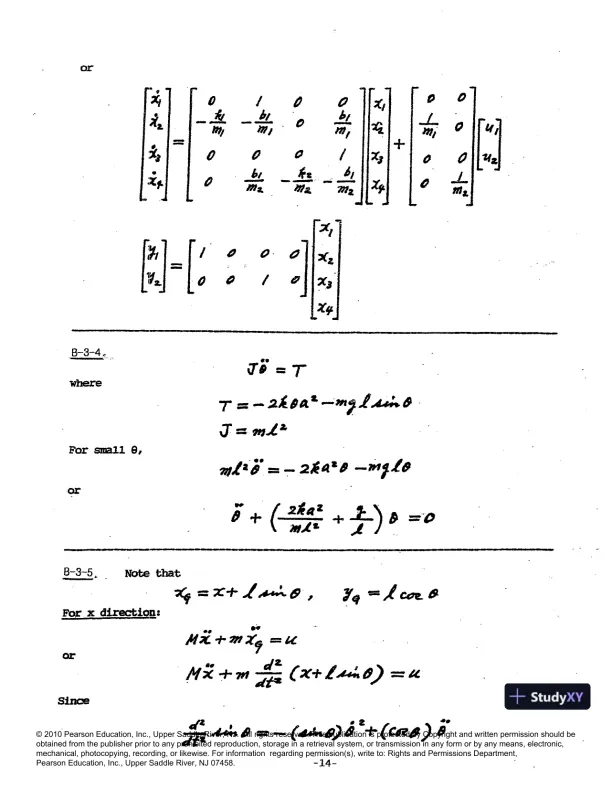 or
[ẋ₁ ẋ₂ ẋ₃ ẋ₄] = [0 1 0 0; -k₁/m₁ -b₁/m₁ 0 b₁/m₁; 0 0 0 1; 0 b₁/m₂ -k₂/m₂ -b₁/m₂] [x₁ x₂ x₃ x₄] + [0 0; 1/m₁ 0; 0 0; 0 1/m₂] [u₁ u₂]
[y₁ y₂] = [1 0 0 0; 0 0 1 0] [x₁ x₂ x₃ x₄]
B-3-4.
Jθ̈ = T
where
T = -2kθa² - mgl sin θ
J = ml²
For small θ,
ml²θ̈ = -2ka²θ - mglθ
or
θ̈ + (2ka²/ml² + g/l) θ = 0
B-3-5. Note that
x_G = x + l sin θ, y_G = l cos θ
For x direction:
Mẍ + mẍ_G = u
or
Mẍ + m d²/dt² (x + l sin θ) = u
StudyXY
Since
d²/dt² sin θ = -(sin θ) θ̇² + (cos θ) θ̈
© 2010 Pearson Education, Inc., Upper Saddle River, NJ. All rights reserved. This publication is protected by Copyright and written permission should be
obtained from the publisher prior to any prohibited reproduction, storage in a retrieval system, or transmission in any form or by any means, electronic,
mechanical, photocopying, recording, or likewise. For information regarding permission(s), write to: Rights and Permissions Department,
Pearson Education, Inc., Upper Saddle River, NJ 07458.
-14-